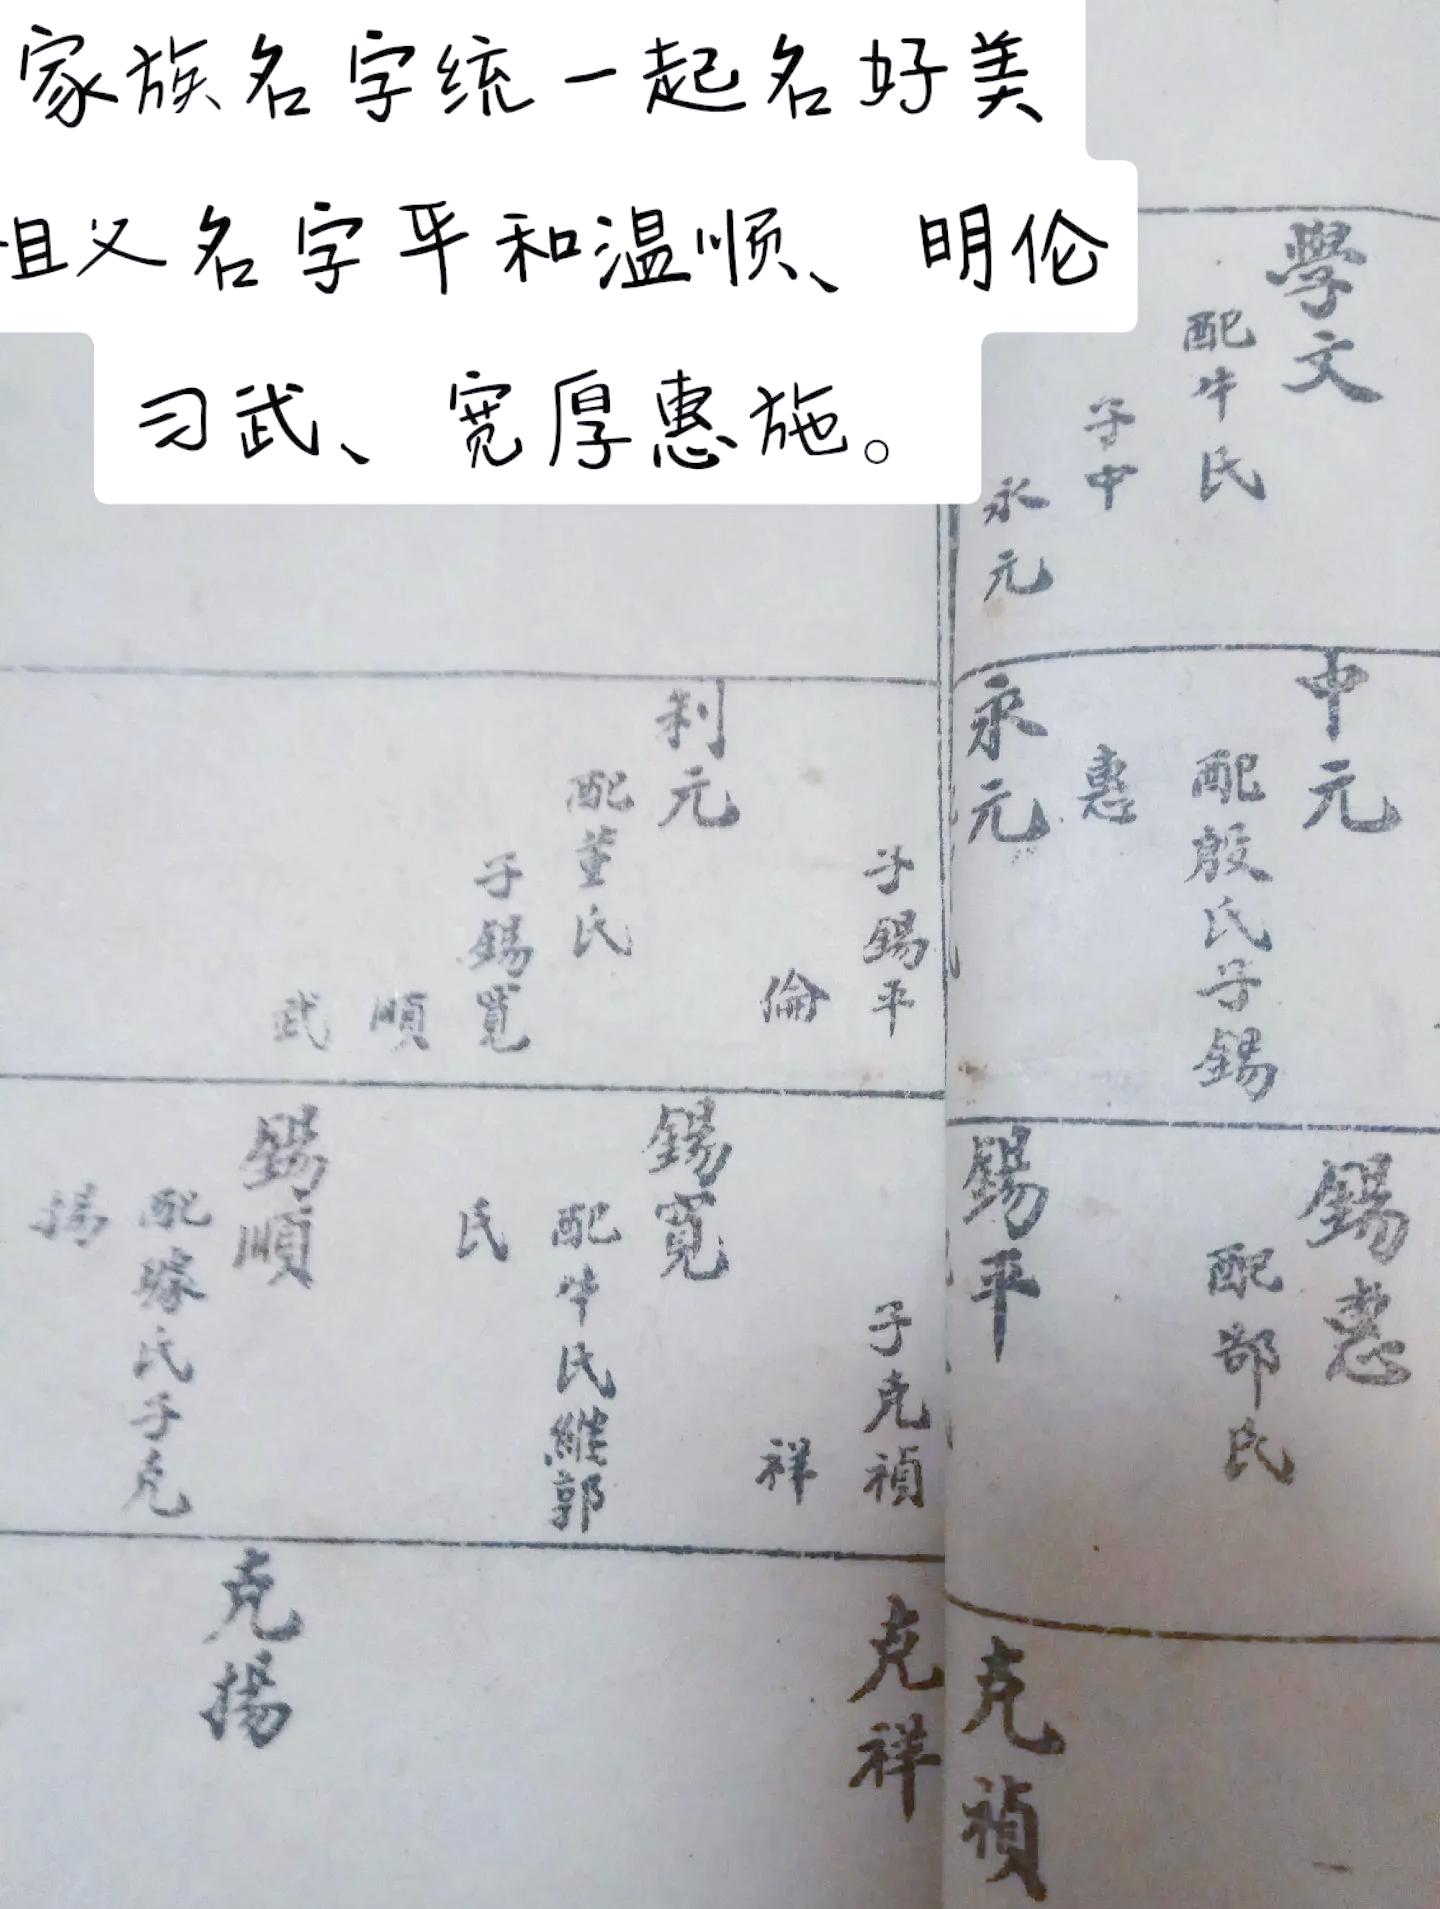 家族名字统一起名好美
祖父名字平和温顺、明伦
习武、宽厚惠施。
學文
配牛氏
子中
永元
中元
配殷氏子錫
惠
永元
子錫平
倫
利元
配董氏
子錫寬
順
武
錫惠
配部氏
錫平
子克禎
祥
錫寬
配牛氏繼郭
氏
錫順
配 氏子克
揚
克禎
克祥
克揚